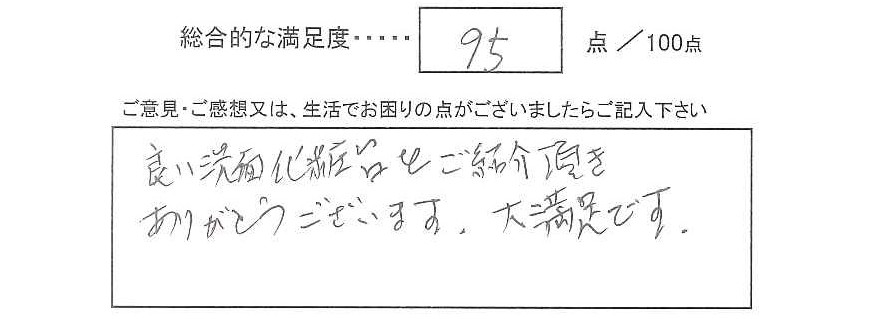 総合的な満足度・・・・・ 95 点 /100点
ご意見・ご感想又は、生活でお困りの点がございましたらご記入下さい
良い洗面化粧台をご紹介頂き
ありがとうございます。大満足です.